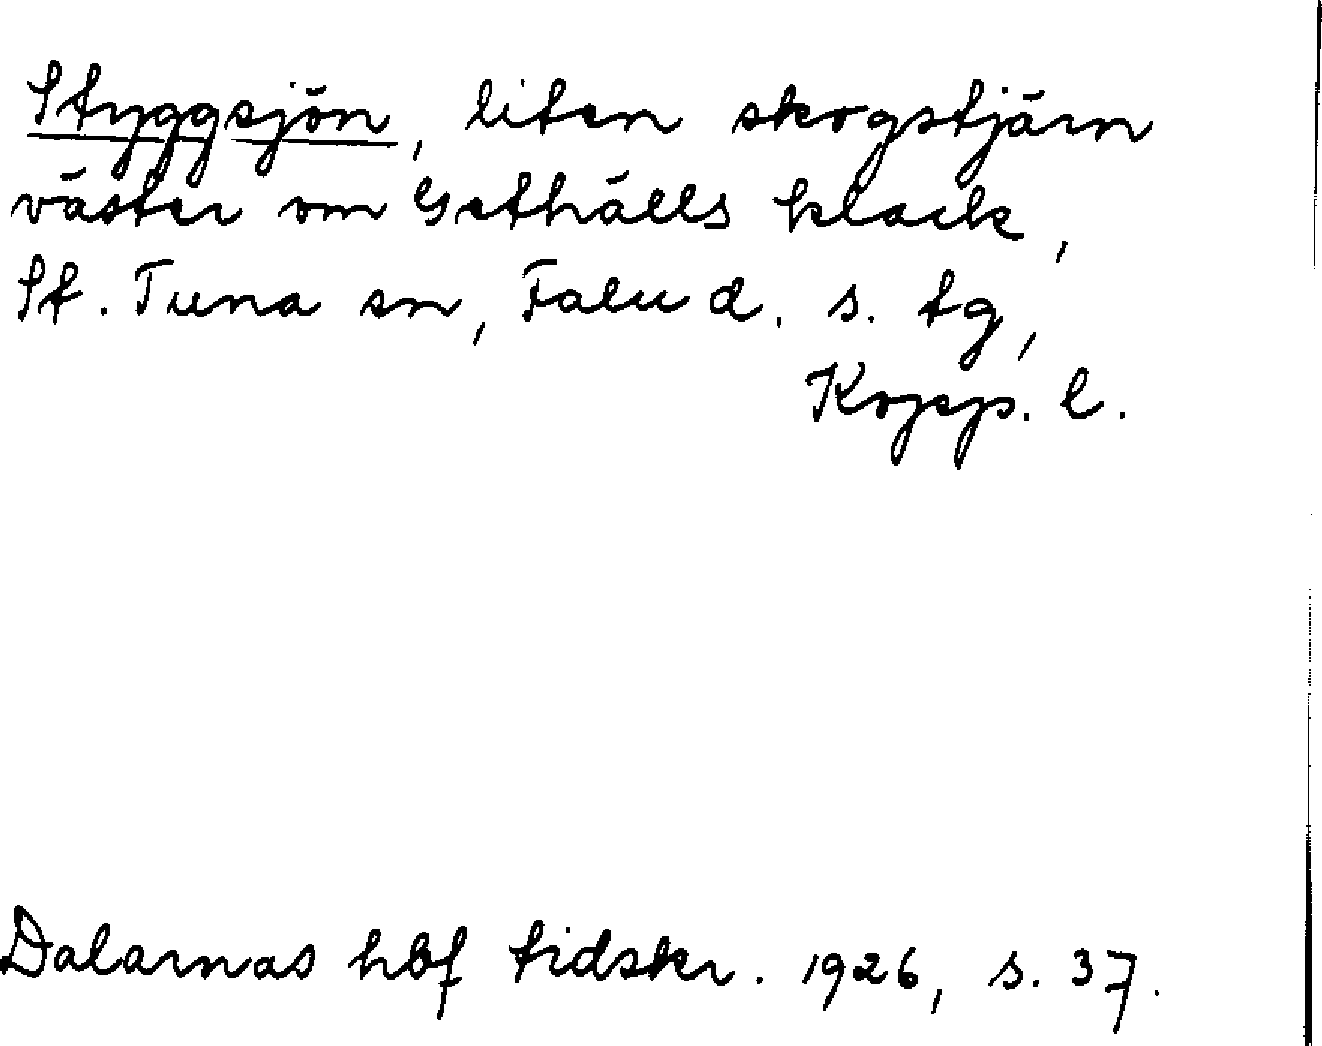 Styggsjön, liten skogstjärn
väster om Gethälls klack,
St. Tuna sn, Falu d. s. tg,
Kopp. l.
Dalarnas hbf tidskr. 1926, s. 37.